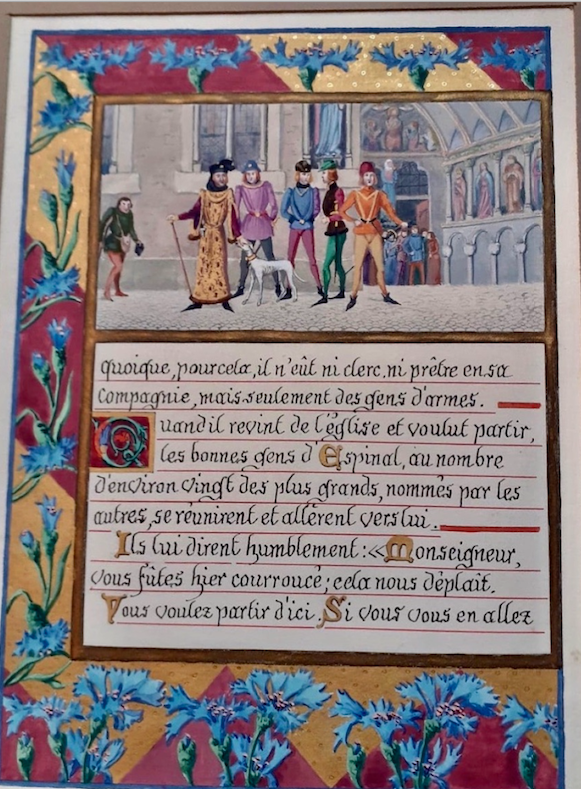 quoique, pour cela, il n'eût ni clerc, ni prêtre en sa
compagnie, mais seulement des gens d'armes.
Quand il revint de l'église et voulut partir,
les bonnes gens d'Espinal, au nombre
d'environ vingt des plus grands, nommés par les
autres, se réunirent et allèrent vers lui.
Ils lui dirent humblement : «Monseigneur,
vous fûtes hier courroucé ; cela nous déplait.
Vous voulez partir d'ici. Si vous vous en allez